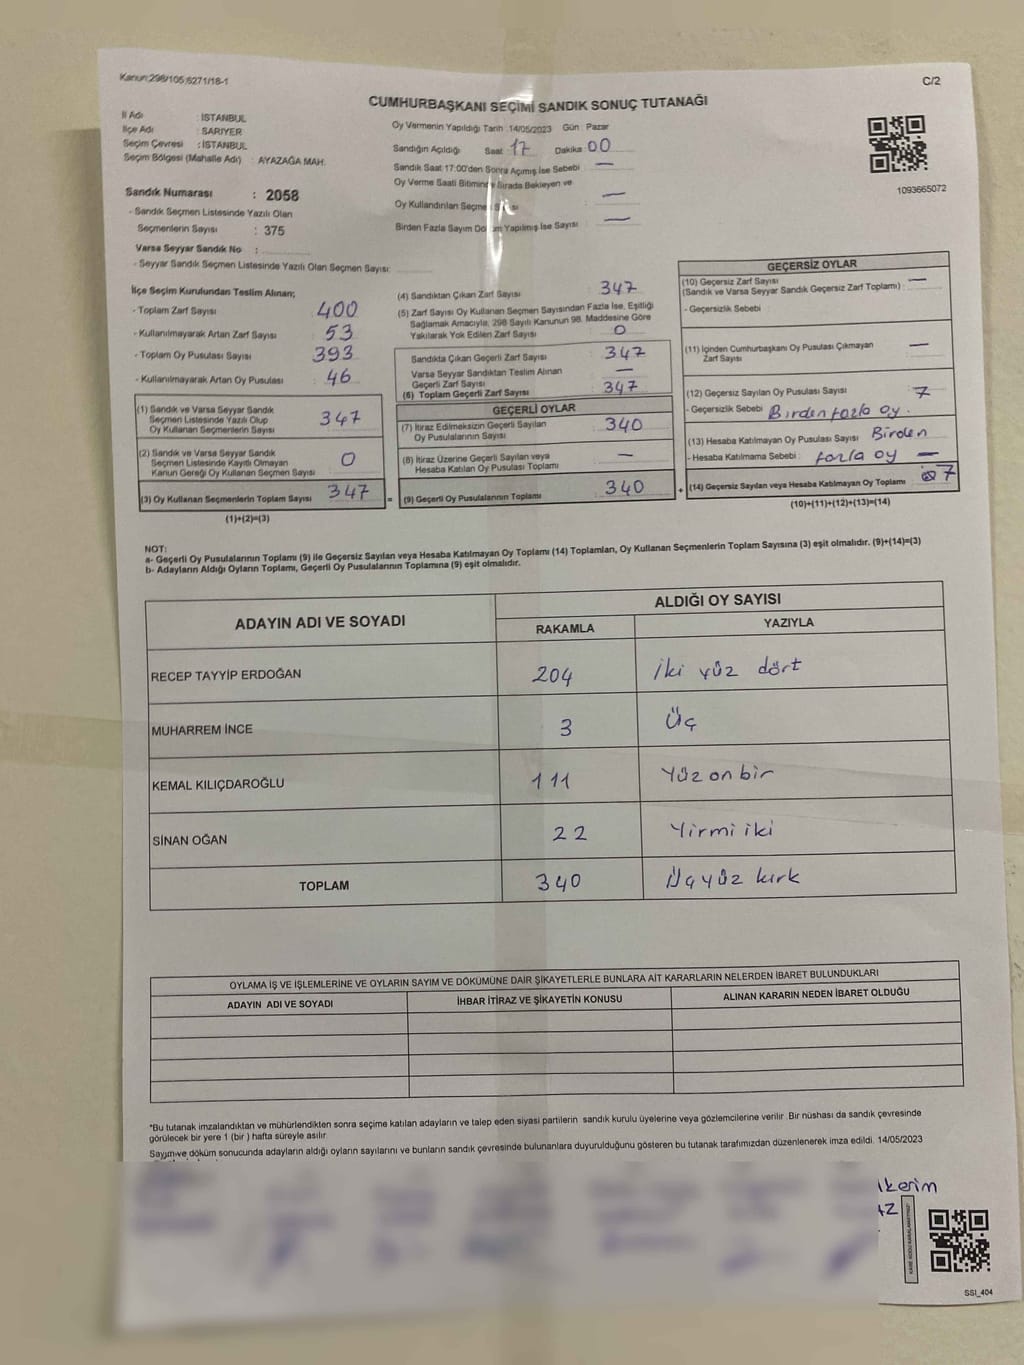 Kanun:298/105;6271/18-1
C/2
CUMHURBAŞKANI SEÇİMİ SANDIK SONUÇ TUTANAĞI
İl Adı : İSTANBUL
İlçe Adı : SARIYER
Seçim Çevresi : İSTANBUL
Seçim Bölgesi (Mahalle Adı) : AYAZAĞA MAH.
Sandık Numarası : 2058
- Sandık Seçmen Listesinde Yazılı Olan
Seçmenlerin Sayısı : 375
Varsa Seyyar Sandık No :
- Seyyar Sandık Seçmen Listesinde Yazılı Olan Seçmen Sayısı:
Oy Vermenin Yapıldığı Tarih :14/05/2023 Gün : Pazar
Sandığın Açıldığı Saat : 17 Dakika : 00
Sandık Saat 17:00'den Sonra Açımış İse Sebebi : —
Oy Verme Saati Bitiminde Sırada Bekleyen ve
Oy Kullandırılan Seçmen Sayısı : —
Birden Fazla Sayım Döküm Yapılmış İse Sayısı : —
1093665072
İlçe Seçim Kurulundan Teslim Alınan;
- Toplam Zarf Sayısı : 400
- Kullanılmayarak Artan Zarf Sayısı : 53
- Toplam Oy Pusulası Sayısı : 393
- Kullanılmayarak Artan Oy Pusulası : 46
(1) Sandık ve Varsa Seyyar Sandık
Seçmen Listesinde Yazılı Olup
Oy Kullanan Seçmenlerin Sayısı : 347
(2) Sandık ve Varsa Seyyar Sandık
Seçmen Listesinde Kayıtlı Olmayan
Kanun Gereği Oy Kullanan Seçmen Sayısı : 0
(3) Oy Kullanan Seçmenlerin Toplam Sayısı : 347
(1)+(2)=(3)
=
(4) Sandıktan Çıkan Zarf Sayısı : 347
(5) Zarf Sayısı Oy Kullanan Seçmen Sayısından Fazla İse, Eşitliği
Sağlamak Amacıyla, 298 Sayılı Kanunun 98. Maddesine Göre
Yakılarak Yok Edilen Zarf Sayısı : 0
Sandıkta Çıkan Geçerli Zarf Sayısı : 347
Varsa Seyyar Sandıktan Teslim Alınan
Geçerli Zarf Sayısı : —
(6) Toplam Geçerli Zarf Sayısı : 347
GEÇERLİ OYLAR
(7) İtiraz Edilmeksizin Geçerli Sayılan
Oy Pusulalarının Sayısı : 340
(8) İtiraz Üzerine Geçerli Sayılan veya
Hesaba Katılan Oy Pusulası Toplamı : —
(9) Geçerli Oy Pusulalarının Toplamı : 340
+
GEÇERSİZ OYLAR
(10) Geçersiz Zarf Sayısı —
(Sandık ve Varsa Seyyar Sandık Geçersiz Zarf Toplamı) :
- Geçersizlik Sebebi :
(11) İçinden Cumhurbaşkanı Oy Pusulası Çıkmayan
Zarf Sayısı : —
(12) Geçersiz Sayılan Oy Pusulası Sayısı : 7
- Geçersizlik Sebebi : Birden fazla oy.
(13) Hesaba Katılmayan Oy Pusulası Sayısı : Birden
- Hesaba Katılmama Sebebi : fazla oy —
(14) Geçersiz Sayılan veya Hesaba Katılmayan Oy Toplamı : 7
(10)+(11)+(12)+(13)=(14)
NOT:
a- Geçerli Oy Pusulalarının Toplamı (9) ile Geçersiz Sayılan veya Hesaba Katılmayan Oy Toplamı (14) Toplamları, Oy Kullanan Seçmenlerin Toplam Sayısına (3) eşit olmalıdır. (9)+(14)=(3)
b- Adayların Aldığı Oyların Toplamı, Geçerli Oy Pusulalarının Toplamına (9) eşit olmalıdır.
ADAYIN ADI VE SOYADI
ALDIĞI OY SAYISI
RAKAMLA YAZIYLA
RECEP TAYYİP ERDOĞAN 204 iki yüz dört
MUHARREM İNCE 3 Üç
KEMAL KILIÇDAROĞLU 111 Yüz on bir
SİNAN OĞAN 22 Yirmi iki
TOPLAM 340 Üçyüz kırk
OYLAMA İŞ VE İŞLEMLERİNE VE OYLARIN SAYIM VE DÖKÜMÜNE DAİR ŞİKAYETLERLE BUNLARA AİT KARARLARIN NELERDEN İBARET BULUNDUKLARI
ADAYIN ADI VE SOYADI İHBAR İTİRAZ VE ŞİKAYETİN KONUSU ALINAN KARARIN NEDEN İBARET OLDUĞU
*Bu tutanak imzalandıktan ve mühürlendikten sonra seçime katılan adayların ve talep eden siyasi partilerin sandık kurulu üyelerine veya gözlemcilerine verilir. Bir nüshası da sandık çevresinde
görülecek bir yere 1 (bir ) hafta süreyle asılır.
Sayım ve döküm sonucunda adayların aldığı oyların sayılarını ve bunların sandık çevresinde bulunanlara duyurulduğunu gösteren bu tutanak tarafımızdan düzenlenerek imza edildi. 14/05/2023
SSI_404